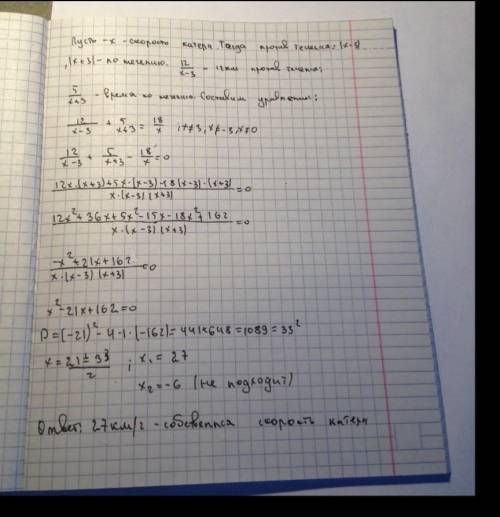 Пусть - х - скорость катера. Тогда против течения: (х-3)
, (х+3) - по течению. 12/(х-3) - против течения;
5/(х+3) - время по течению. Составим уравнение:
12/(х-3) + 5/(х+3) = 18/х ; х≠3, х≠-3, х≠0
12/(х-3) + 5/(х+3) - 18/х = 0
(12х·(х+3)+5х·(х-3)-18(х-3)·(х+3))/(х·(х-3)(х+3)) = 0
(12х²+36х+5х²-15х-18х²+162)/(х·(х-3)(х+3)) = 0
(-х²+21х+162)/(х·(х-3)(х+3)) = 0
х²-21х+162=0
D=(-21)²-4·1·(-162)=441+648=1089=33²
х=(21±33)/2 ; х₁=27
х₂=-6 (не подходит)
Ответ: 27км/г - собственная скорость катера